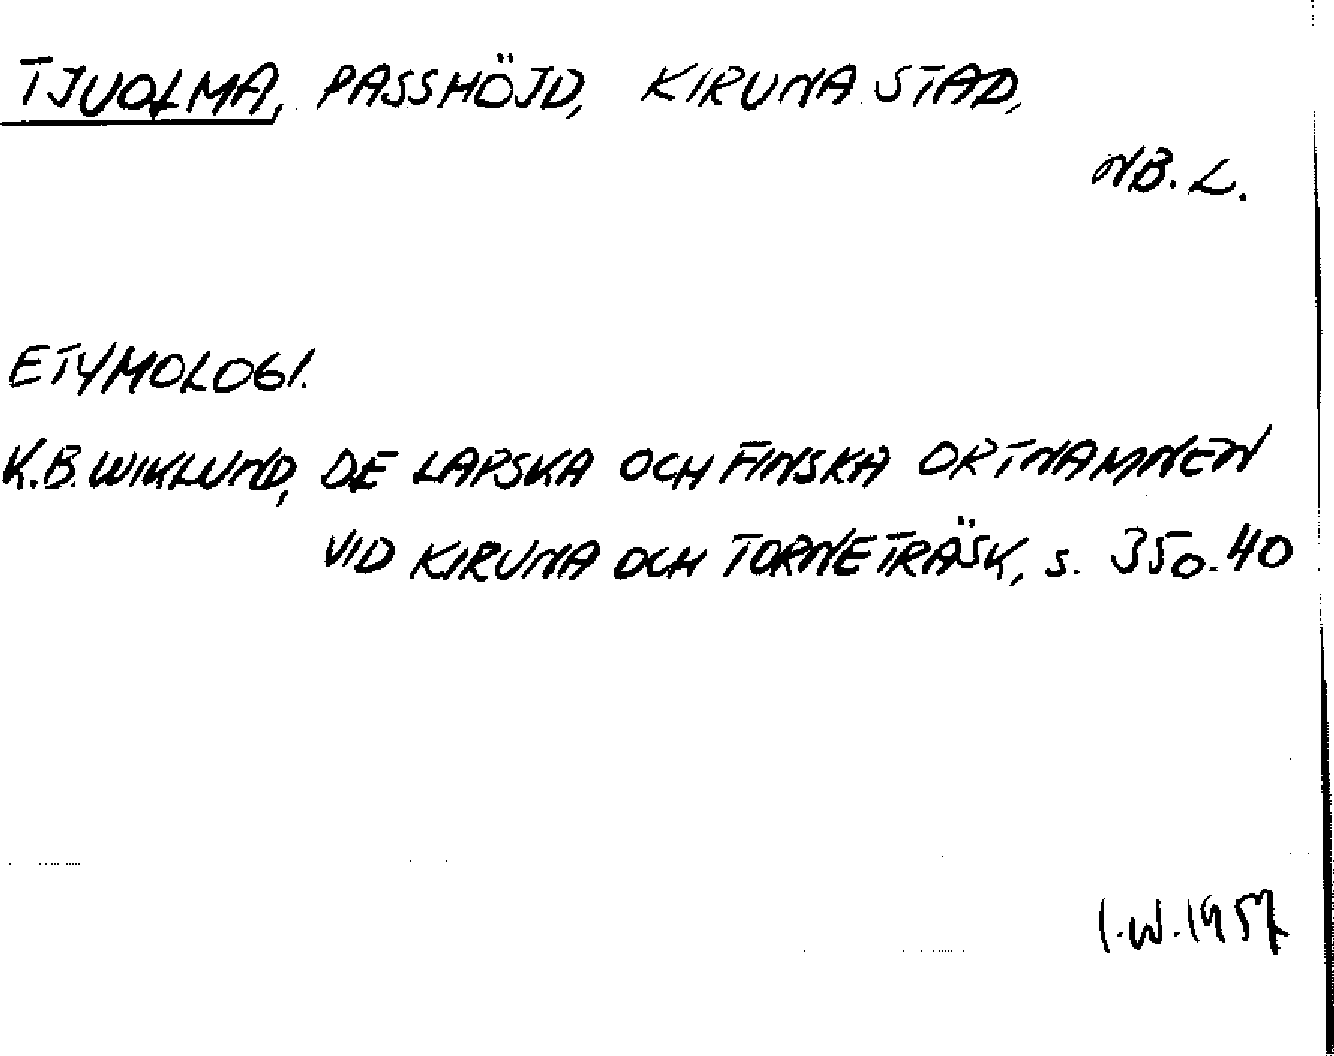 TJUOLMA, PASSHÖJD, KIRUNA STAD,
NB. L.
ETYMOLOGI.
K.B. WIKLUND, DE LAPSKA OCH FINSKA ORTNAMNEN
VID KIRUNA OCH TORNETRÄSK, s. 35o. 40
I.W. 1957